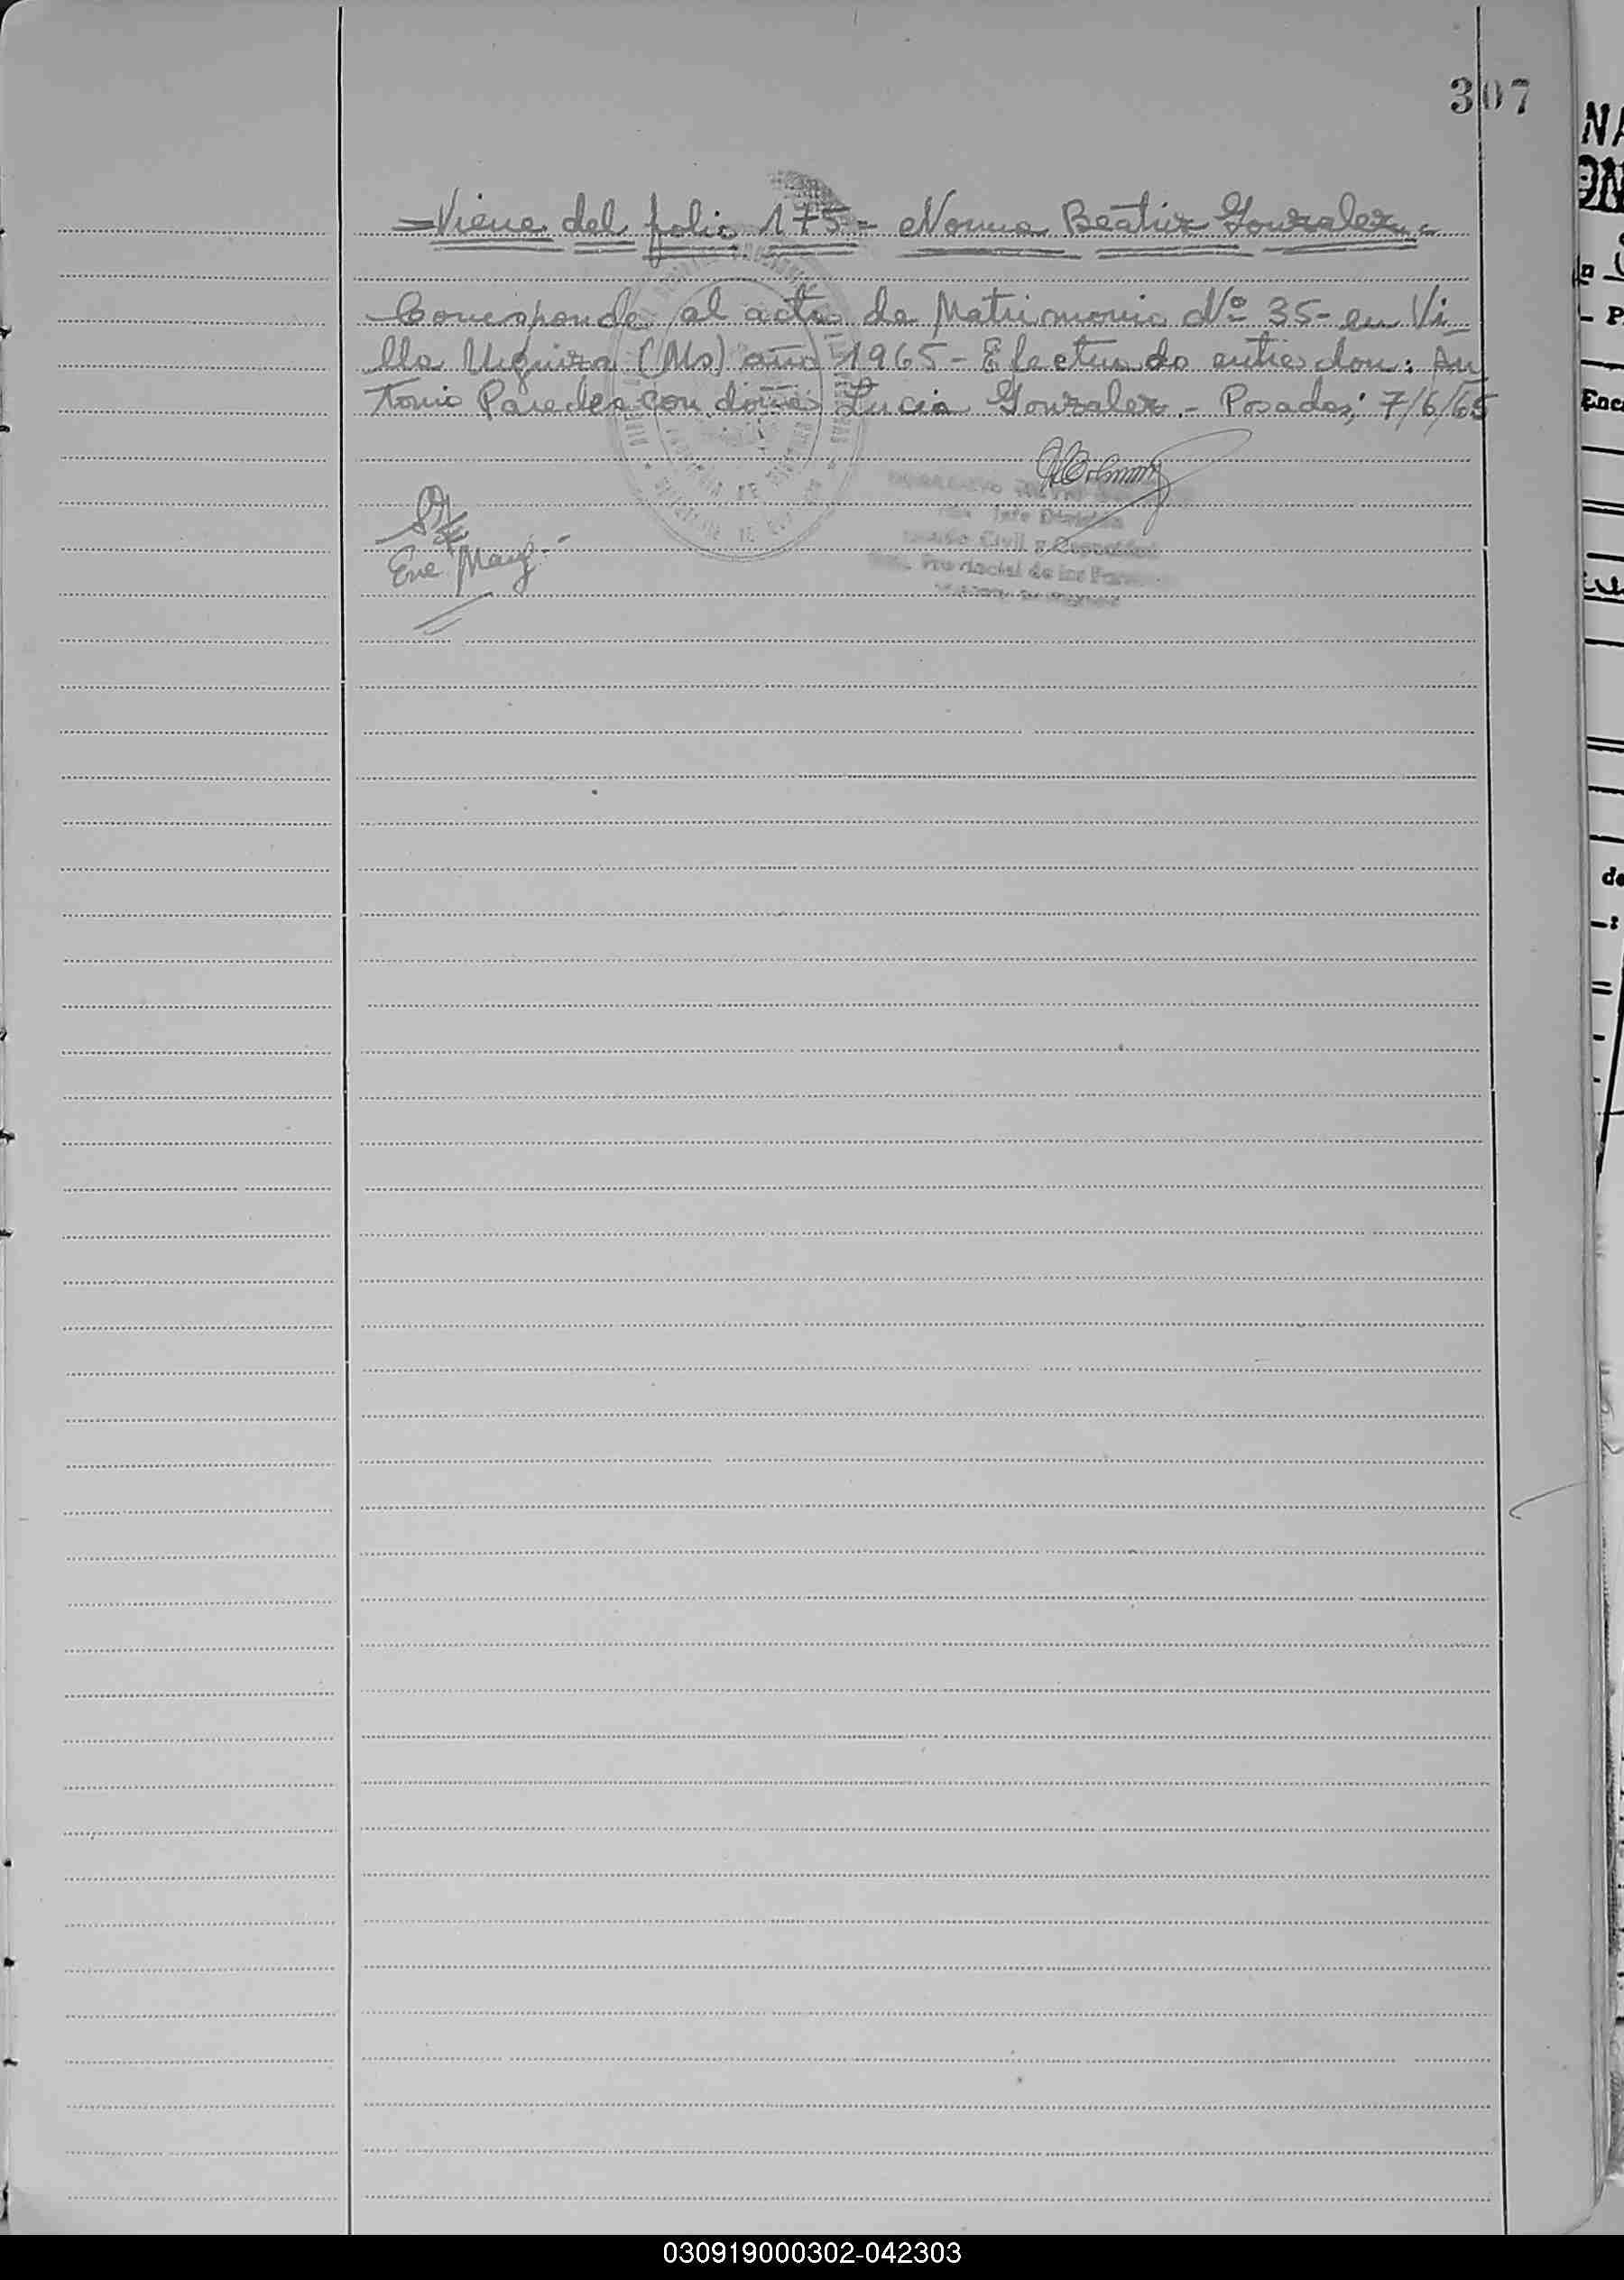 307
=Viene del folio 175= Norma Beatriz Gonzalez.=
Corresponde al acta de Matrimonio Nº 35- en Vi
lla Urquiza (Ms) año 1965- Efectuado entre don: An
tonio Paredes con doña Lucia Gonzalez.- Posadas; 7/6/65
Jefe División
Civil y Capacidad
Provincial de las Personas
030919000302-042303